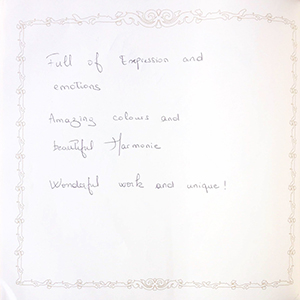 Full of Expression and
emotions
Amazing colours and
beautiful Harmonie
Wonderful work and unique!